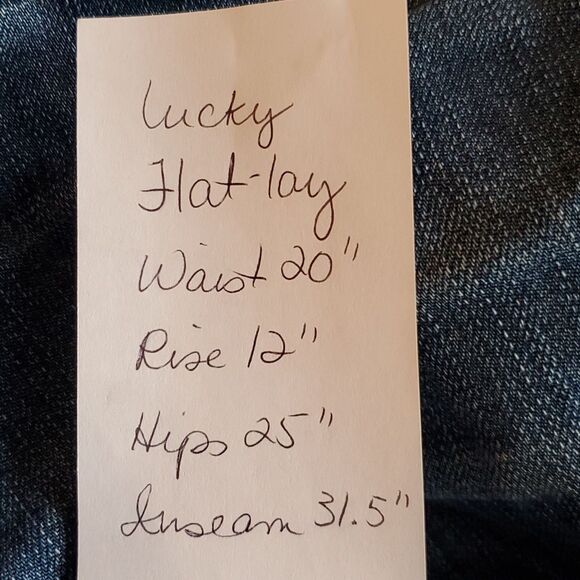 Lucky
Flat-lay
Waist 20"
Rise 12"
Hips 25"
Inseam 31.5"